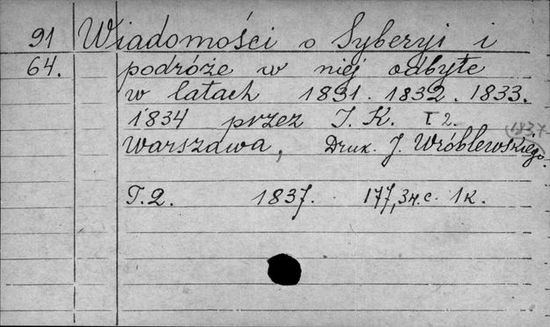 91 Wiadomości o Syberyi i
64. podróże w niej odbyte
w latach 1831. 1832. 1833.
1834 przez J. K. T 2.
1837
Warszawa, Druk. J. Wróblewskiego.
T. 2. 1837. 177, 3 н. с. 1 к.